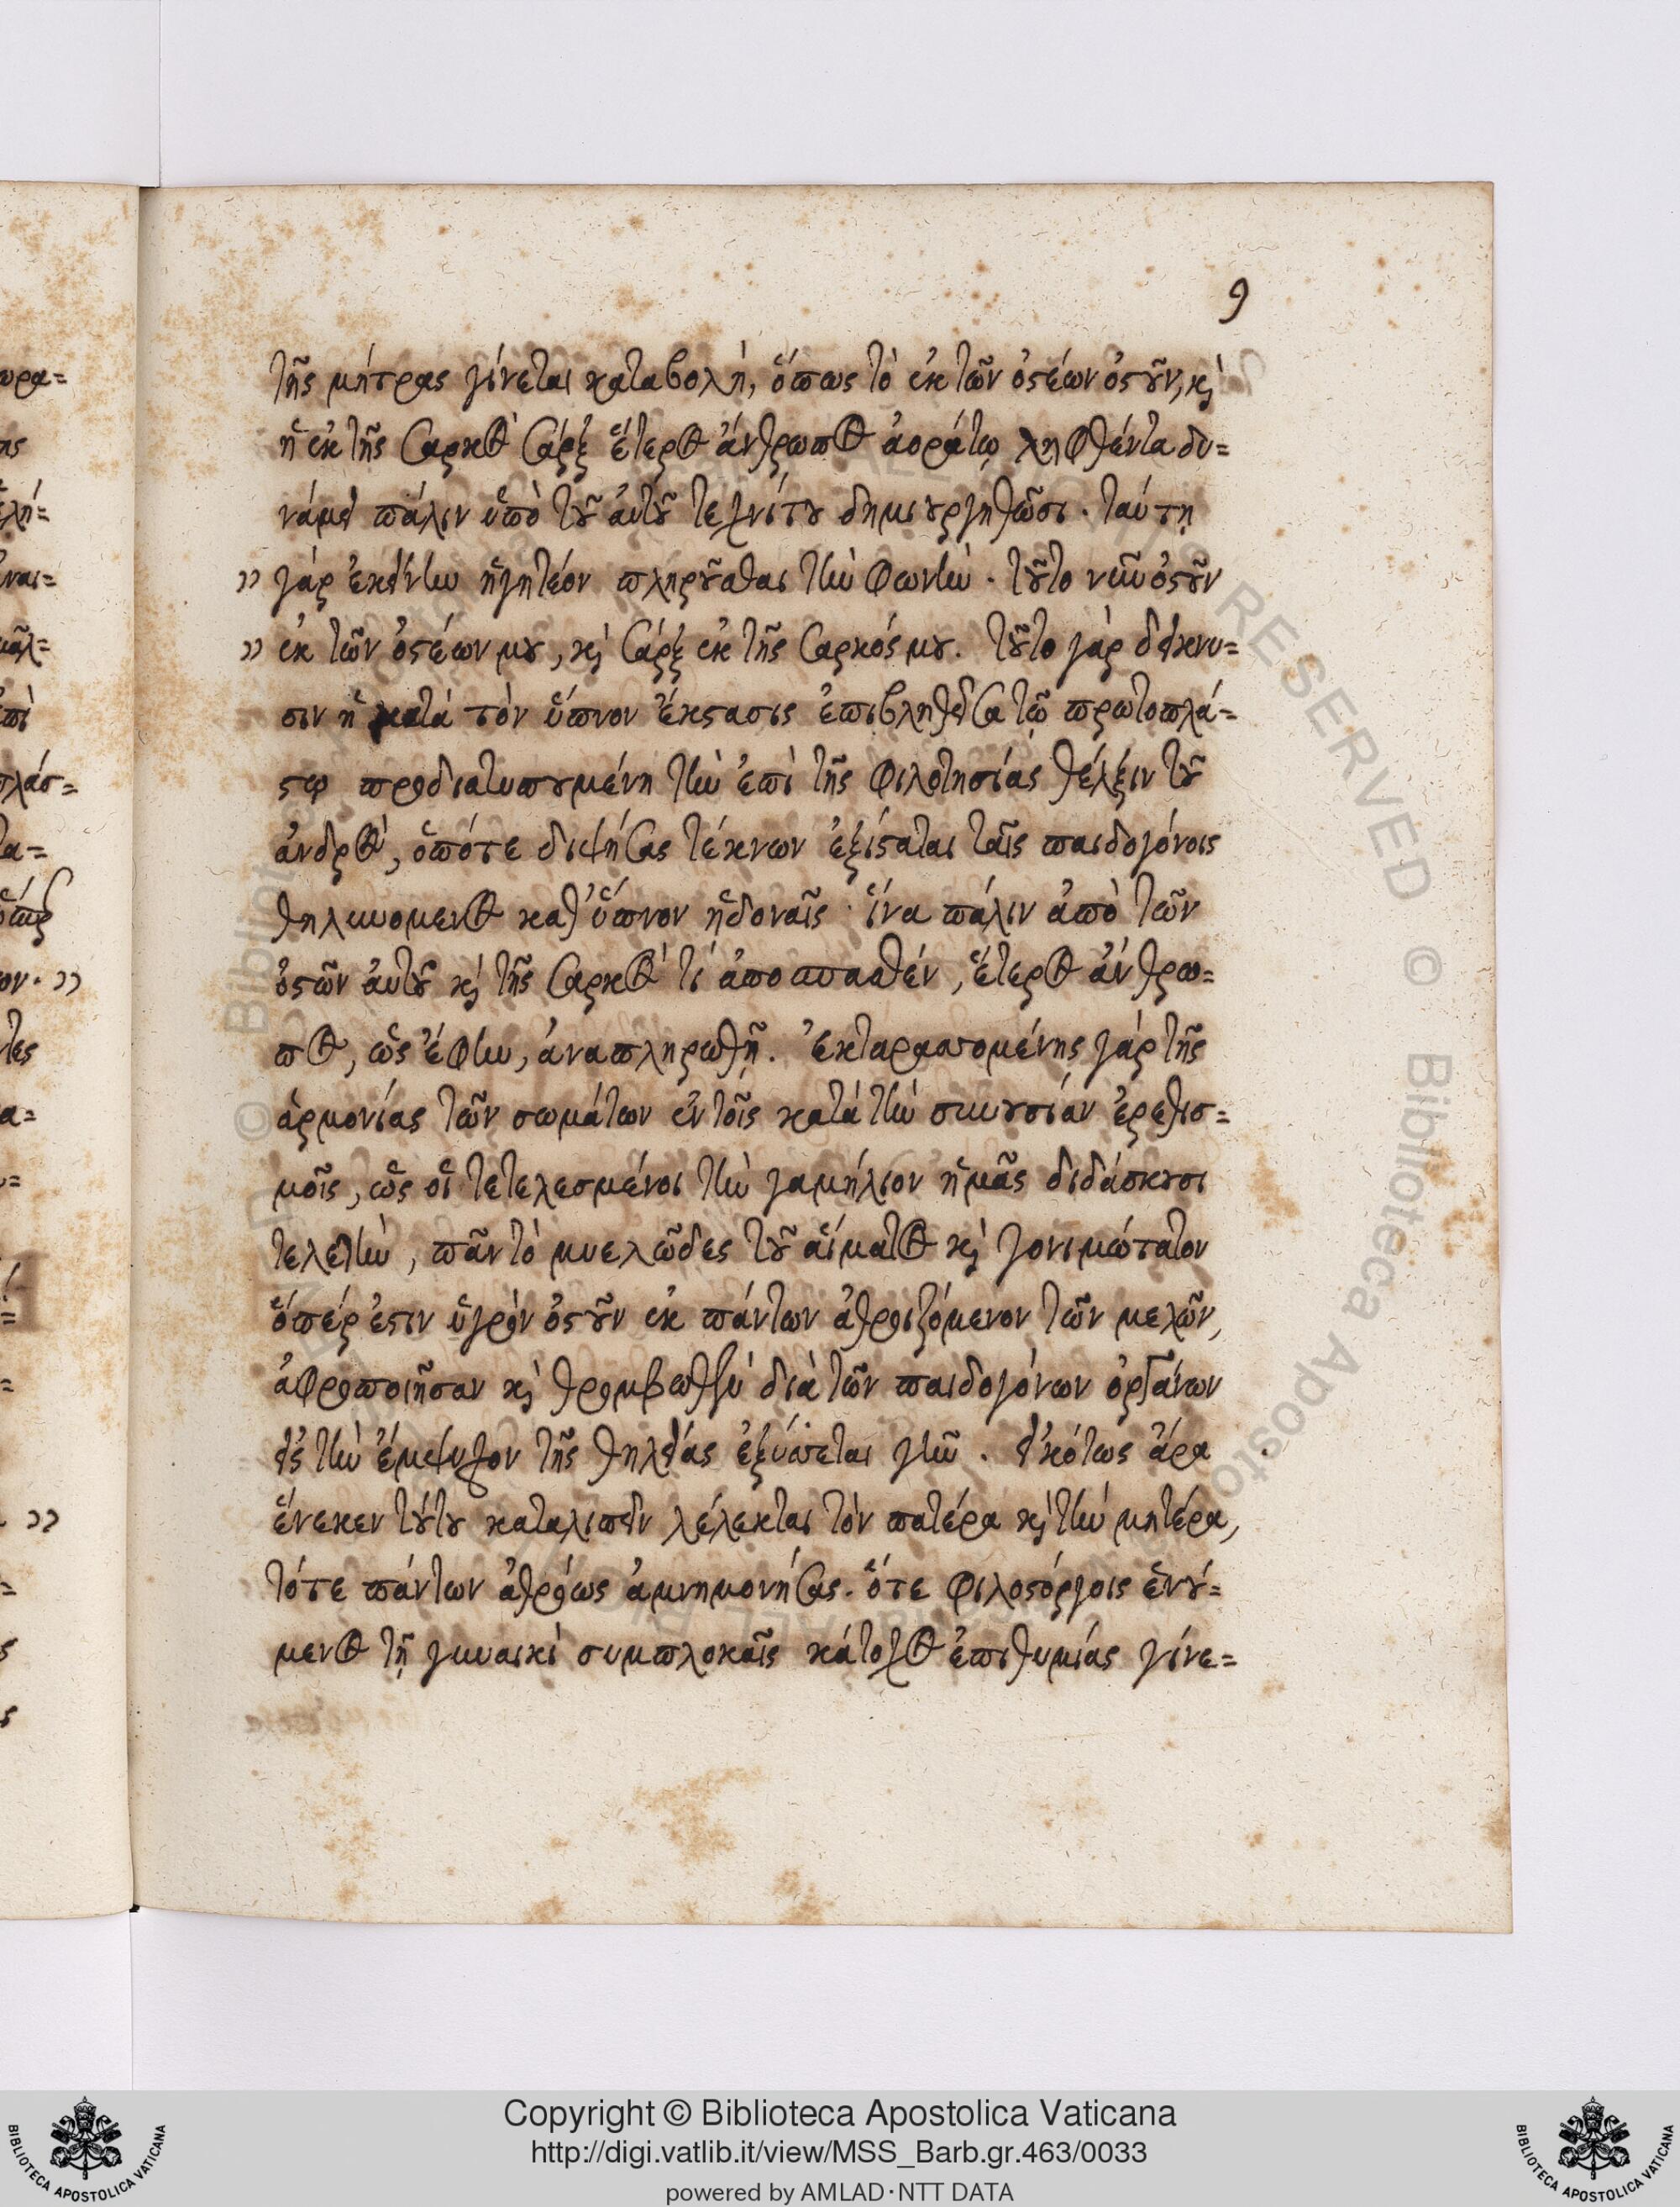 9
τῆς μήτρας γίνεται καταβολὴ, ὅπως τὸ ἐκ τῶν ὀστέων ὀστοῦν, καὶ
ἡ ἐκ τῆς σαρκὸς σάρξ ἕτερος ἄνθρωπος ἀοράτῳ ληφθέντα δυ=
νάμει πάλιν ὑπὸ τοῦ αὐτοῦ τεχνίτου δημιουργηθῶσι. ταύτῃ
" γάρ ἐκείνην ἡγητέον πληροῦσθαι τὴν φωνὴν. τοῦτο νῦν ὀστοῦν
" ἐκ τῶν ὀστέων μου, καὶ σάρξ ἐκ τῆς σαρκός μου. τοῦτο γὰρ δείκνυ=
σιν ἡ κατά τὸν ὕπνον ἔκστασις ἐπιβληθεῖσα τῷ πρωτοπλά=
στῳ προδιατυπουμένη τὴν ἐπὶ τῆς φιλοτησίας θέλξιν τοῦ
ἀνδρὸς, ὁπότε διψήσας τέκνων ἐξίσταται ταῖς παιδογόνοις
θηλυνομενος καθ' ὕπνον ἡδοναῖς. ἵνα πάλιν ἀπὸ τῶν
ὀστῶν αὐτοῦ καὶ τῆς σαρκὸς τὶ ἀποσπασθέν, ἕτερος ἄνθρω=
πος, ὡς ἔφην, ἀναπληρωθῇ. Ἐκταρασσομένης γὰρ τῆς
ἁρμονίας τῶν σωμάτων ἐν τοῖς κατὰ τὴν συνουσίαν ἐρεθισ=
μοῖς, ὡς οἱ τετελεσμένοι τὴν γαμήλιον ἡμᾶς διδάσκουσι
τελετὴν, πᾶν τὸ μυελῶδες τοῦ αἵματος καὶ γονιμώτατον
ὅπέρ ἐστιν ὑγρὸν ὀστοῦν ἐκ πάντων ἀθροιζόμενον τῶν μελῶν,
ἀφροποιῆσαν καὶ θρομβωθὲν διὰ τῶν παιδογόνων ὀργάνων
εἰς τὴν ἔμψυχον τῆς θηλείας ἐξάπτεται γῆν. εἰκότως ἄρα
ἕνεκεν τούτου καταλιπεῖν λέλεκται τὸν πατέρα καὶ τὴν μητέρα,
τότε πάντων ἀθρόως ἀμνημονήσας. ὅτε φιλοστόργοις ἑνού=
μενος τῇ γυναικὶ συμπλοκαῖς κάτοχος ἐπιθυμίας γίνε=
Copyright © Biblioteca Apostolica Vaticana
http://digi.vatlib.it/view/MSS_Barb.gr.463/0033
powered by AMLAD·NTT DATA